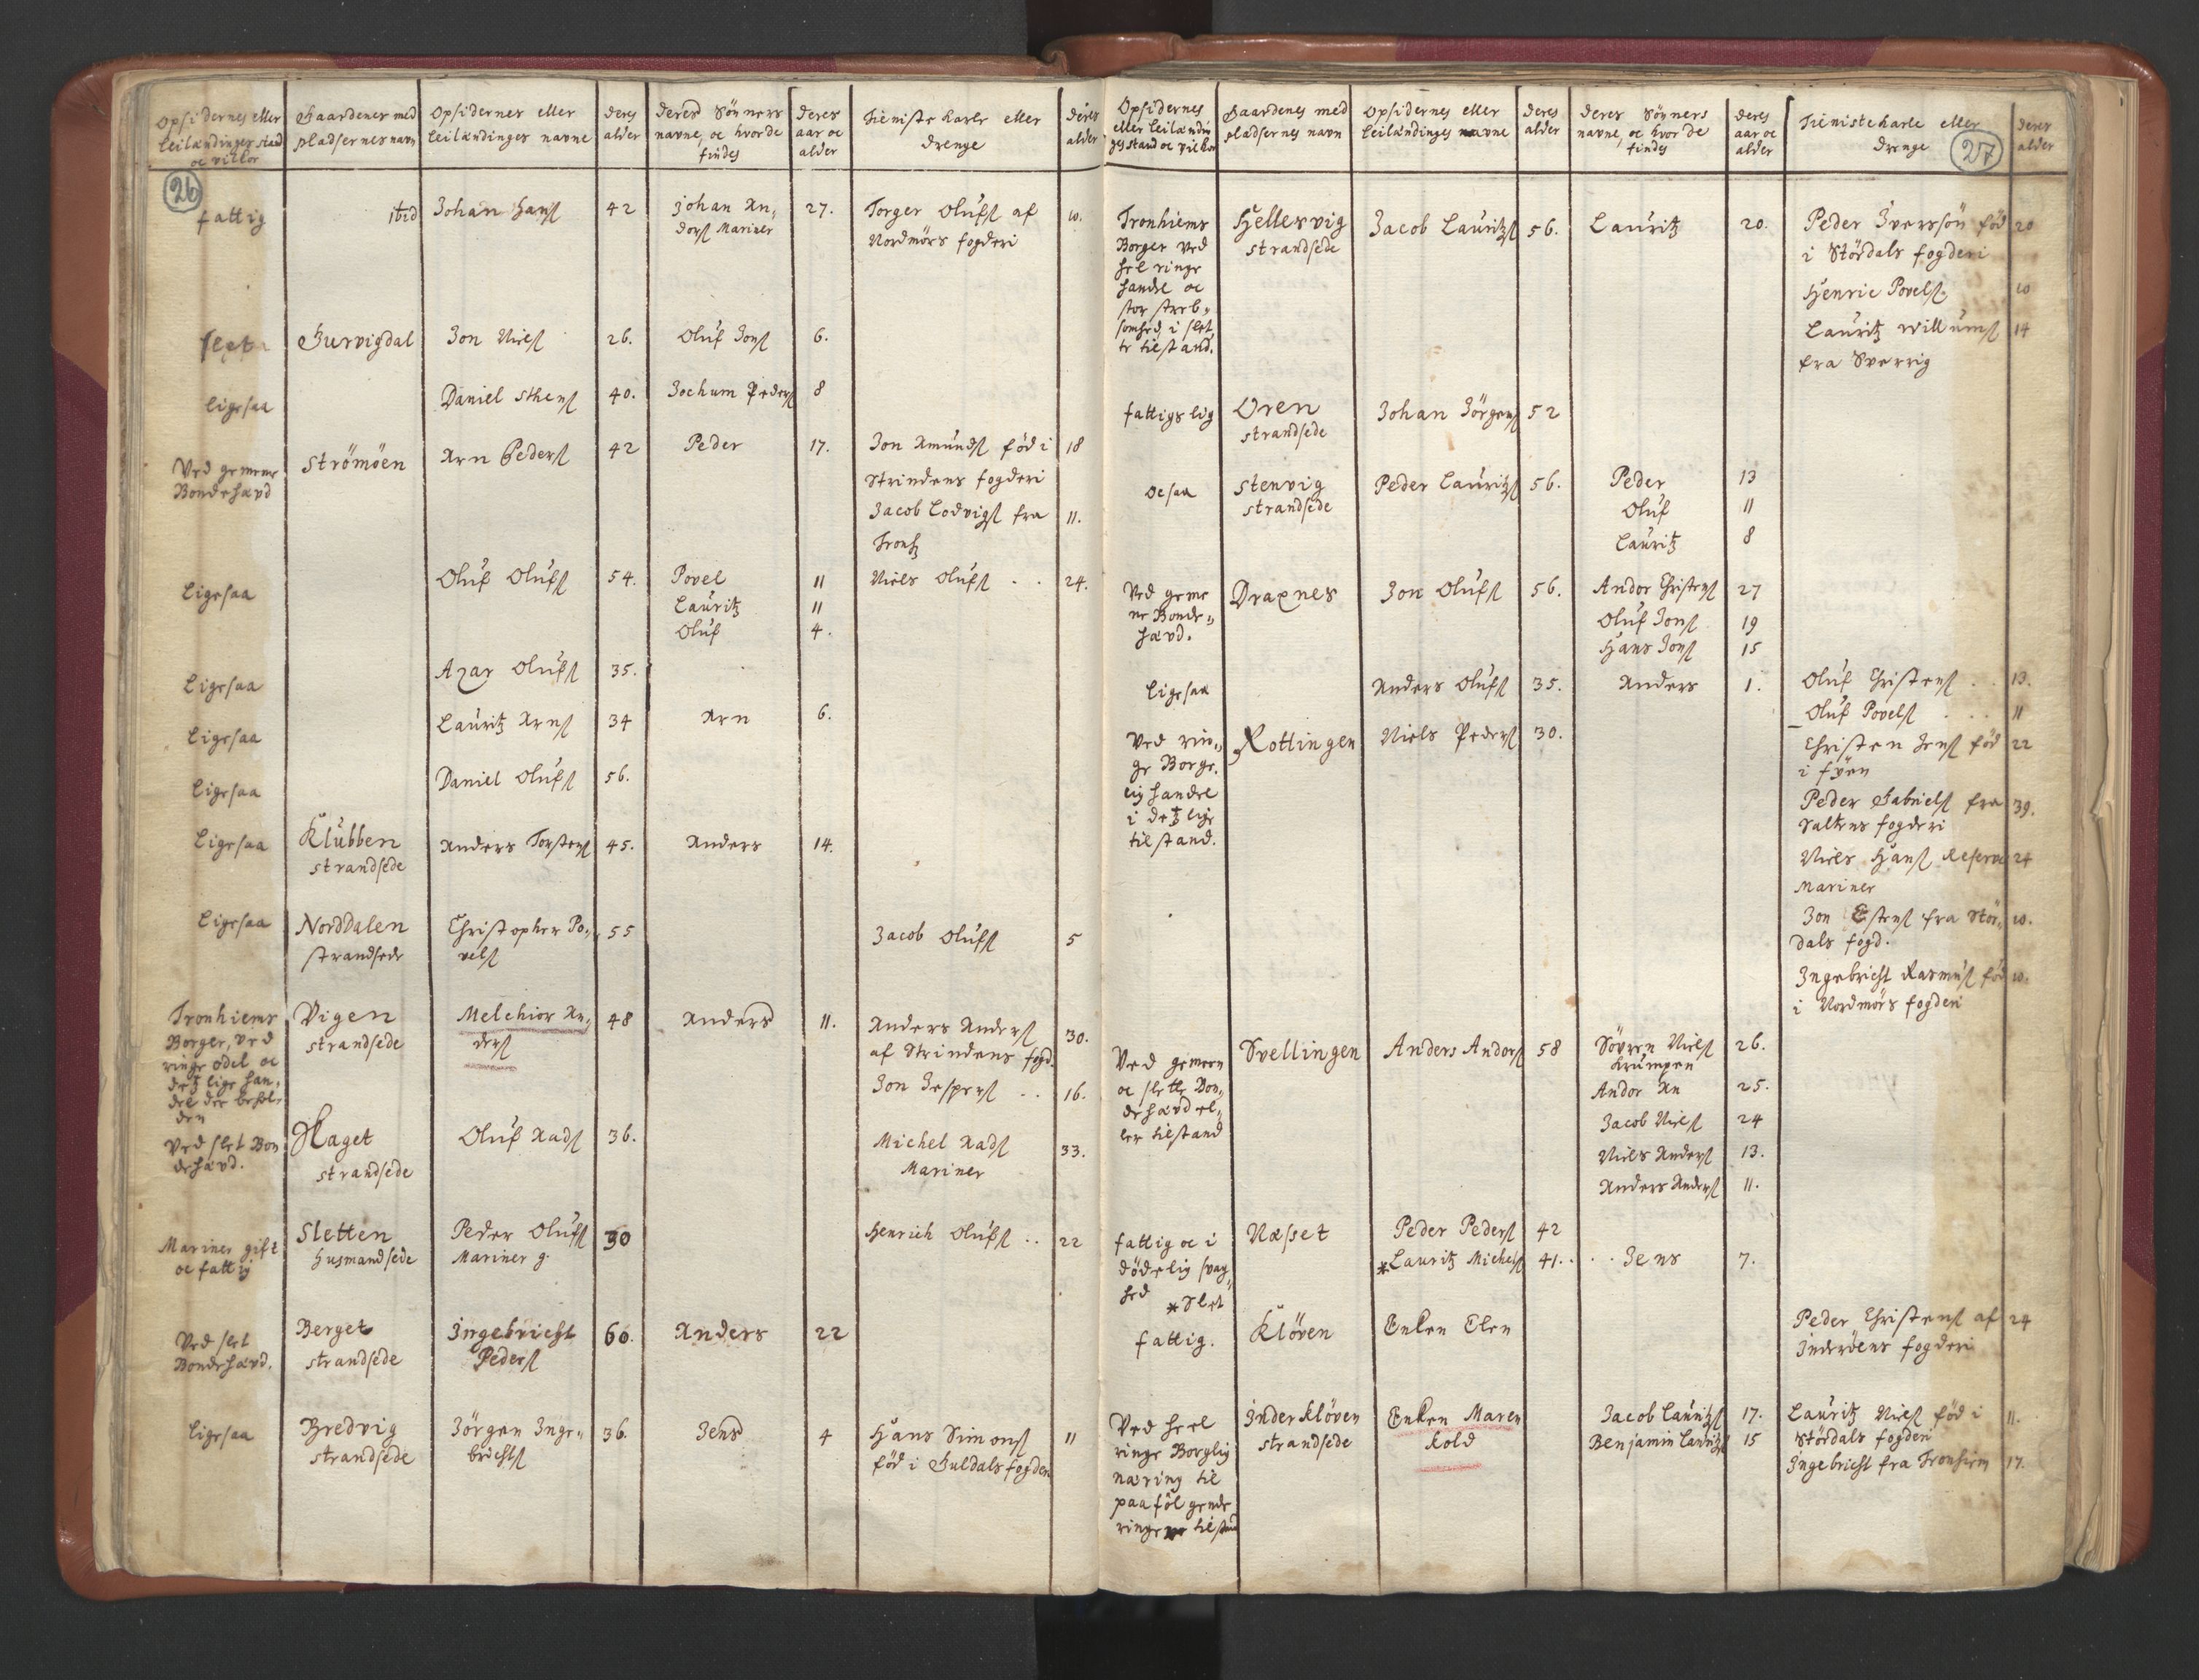 Opsidernes eller
leilændinges stand
oc vilkor
Gaardenes med
pladsernes navn
Opsidernes eller
leilændinges navne
deres
alder
deres Sönners
navne, oc hvor de
findes
deres
aar oc
alder
Tieniste karle eller
drenge
deres
alder
26
fattig
ibid
Johan Hanss
42
Johan An,,
derss Mariner
27.
Torger Olufss af
Nordmörs fogderi
10.
slet
Gurvigdal
Jon Nielss
26.
Oluf Jonss
6.
ligesaa
Daniel Sthenss
40.
Jochum Pederss
8
Ved gemene
Bondehævd
Strömöen
Arn Pederss
42
Peder
17.
Jon Amundss föd i
18
Strindens fogderi
Jacob Lodvigss fra
11.
Tronh
Ligesaa
Oluf Olufss
54.
Povel
11
Niels Olufss . .
24.
Lauritz
11
Oluf
4.
Ligesaa
Azar Olufss
35.
Ligesaa
Lauritz Arnss
34
Arn
6.
Ligesaa
Daniel Olufss
56.
Ligesaa
Klubben
strandsede
Anders Torstenss
45.
Anders
14.
Ligesaa
Norddalen
strandsede
Christopher Po,,
velss
55
Jacob Olufss
5
Tronhiems
Borger, ved
ringe odel oc
detz lige han,
del der besol,
den
Vigen
strandsede
Melchior An,
derss
48
Anders
11.
Anders Anderss
30.
af Strindens fogd.
Jon Jesperss . .
16.
Ved slet Bon
dehævd.
Haget
strandsede
Oluf Aadss
36.
Michel Aadss
Mariner
33.
Mariner gift
oc fattig
Sletten
Husmandsede
Peder Olufss
Mariner g.
30
Henrich Olufss . .
22
Ved slet
Bondehævd.
Berget
strandsede
Ingebricht
Pederss
60.
Anders
22
ligesaa
Bredvig
strandsede
Jörgen Inge,,
brichtss
36.
Jens
4
Hans Simonss
föd i Guldals fogderi
11
Opsidernes
eller leilændin
ges stand oc vilkor
Gaardenes med
pladsernes navn
Opsidernes eller
leilændinges navne
deres
alder
deres Sönners
navne, oc hvor de
findes
deres
aar oc
alder
Tienistekarle eller
drenge
27
deres
alder
Tronhiems
Borger ved
hel ringe
handel oc
stor streb,,
somhed i slet,
te tilstand.
Hellesvig
strandsede
Jacob Lauritzss
56.
Lauritz
20.
Peder Iversön föd
20
i Stördals fogderi
Henric Povelss.
10
Lauritz Willumss
14
fra Sverrig
fattigs lig
Oren
strandsede
Johan Jörgenss
52
ocsaa
Stenvig
strandsede
Peder Lauritzss
56.
Peder
13
Oluf
11
Lauritz
8
Ved geme
ne Bonde,,
hævd.
Dragnes
Jon Olufss
56.
Andor Christenss
27
Oluf Jonss
19
Hans Jonss
15
ligesaa
Anders Olufss
35.
Anders
1.
Oluf Christenss . .
13.
Oluf Povelss . . .
11
Ved rin,,
ge Borge,
lig handel
i detz lige
tilstand.
Kottingen
Niels Pederss
30.
Christen Jenss föd
22
i fyen
Peder Gabrielss fra
39.
Saltens fogderi
Niels Hanss Reserve
24
Mariner
Jon Estenss fra Stör,,
10.
dals fogd.
Ingebricht Rasmuss föd
10.
i Nordmörs fogderi
Ved gemeen
oc slette Bon,,
dehævd el,,
ler tilstand
Svellingen
Anders Andorss
58
Sövren Nielss
Krumpen
26.
Andor An
25.
Jacob Nielss
24
Niels Anderss
13.
Anders Anderss
11.
fattig oc i
dödelig svag,,
hed
*Slet
Næset
Peder Pederss
42
*Lauritz Michelss
41. . . .
Jens
7.
fattig.
Klöven
Enken Elen
Peder Christenss af
24
Inderöens fogderi
Ved heel
ringe Borglig
næring til
paafölgende
ringe tilstand
Inderklöven
strandsede
Enken Maren
kold
Jacob Lauritzss
17.
Benjamin Lauritzss
15
Lauritz Nielss föd i
11.
Stördals fogderi
Ingebricht fra Tronhiem
17.